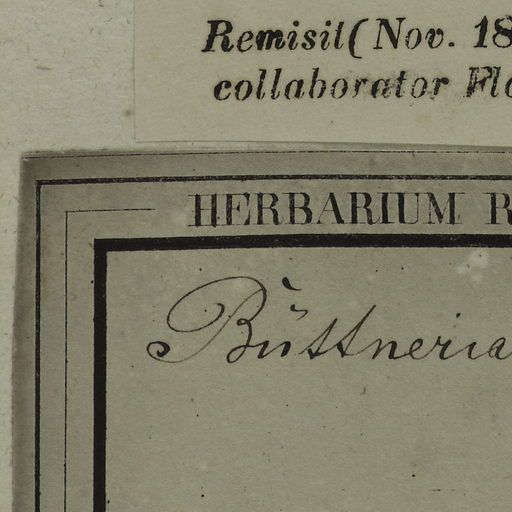 Remisit (Nov. 18
collaborator Flo
HERBARIUM R
Büttneria